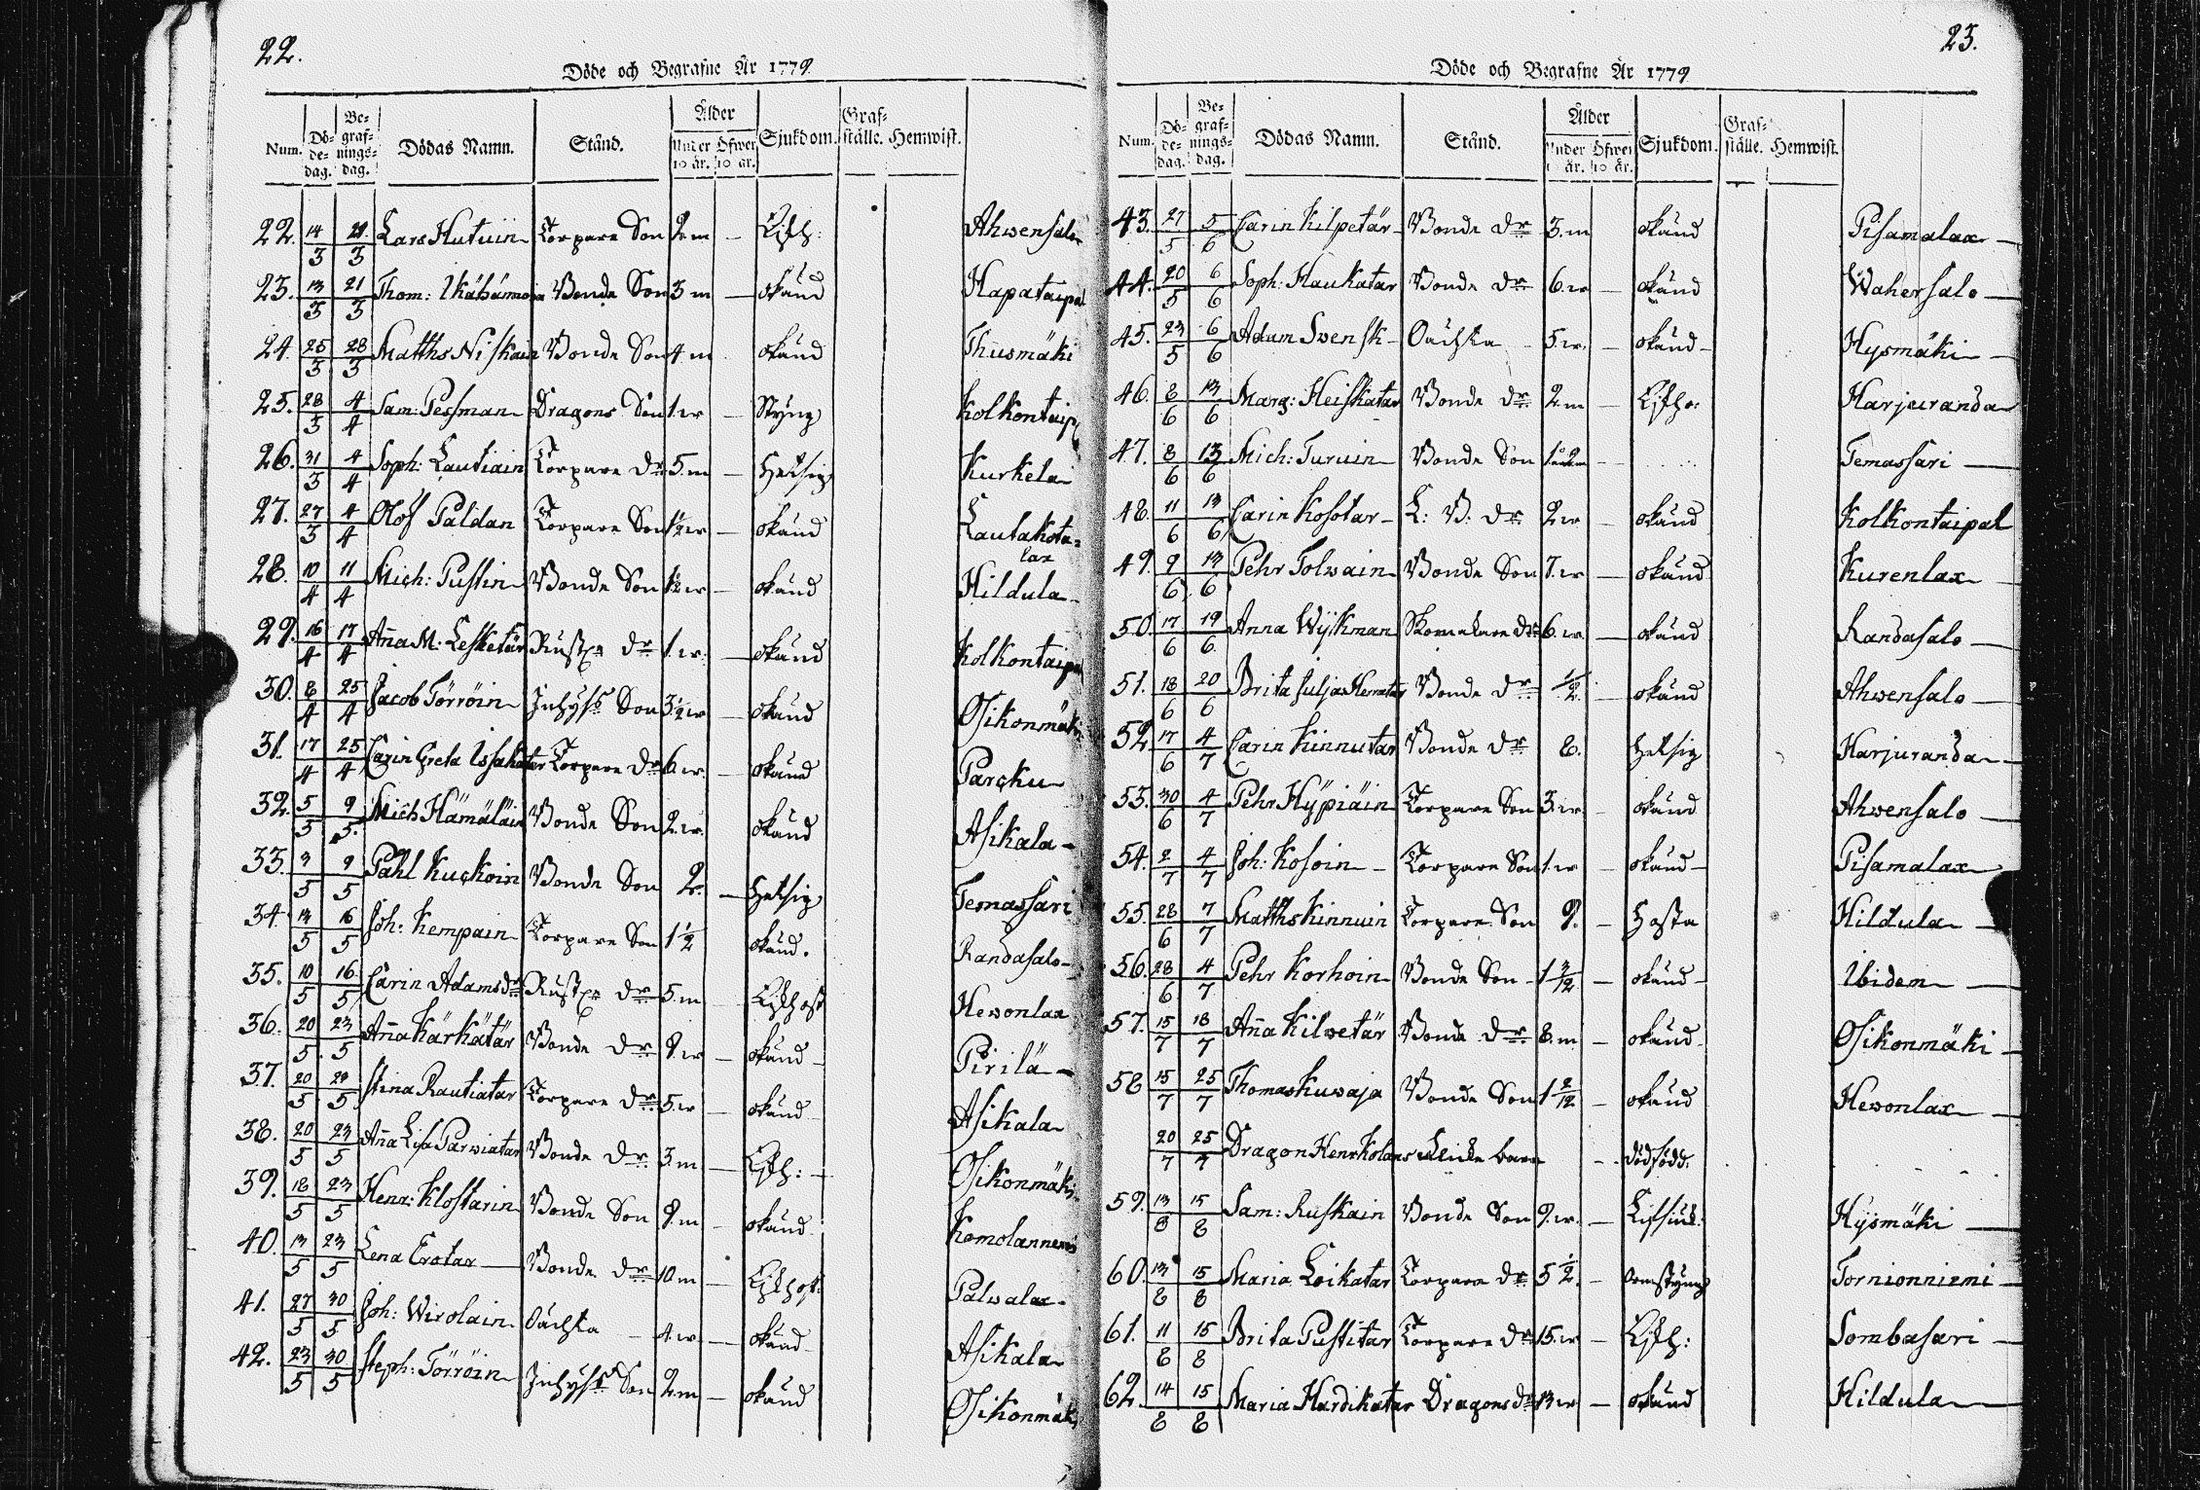 22.
Döde och Begrafne År 1779.
Num. Döde-dag. Be-grafnings-dag. Dödas Namn. Stånd. Ålder Under 10 år. Öfwer 10 år. Sjukdom. Graf-ställe. Hemwist.
22. 14/3 21/3 Lars Hutuin Torpare Son 2 m — Ahwensalo
23. 13/3 21/3 Thom: Bonde Son 3 m — okänd Hapataipal
24. 25/3 28/3 Matths Niskain Bonde Son 4 m okänd Thusmäki
25. 28/3 4/4 Sam: Pessman Dragons Son 1. — Styng Kolkontaip
26. 31/3 4/4 Soph: Lautiain Torpare Dr 5. m — Hetsig Kurkela
27. 27/3 4/4 Olof Paldan Torpare Son 1 1/2 — okänd Lautakota=lax
28. 10/4 11/4 Mich: Pustin Bonde Son 1 1/2 — okänd Hildula
29. 16/4 17/4 Aña M. Lesketär Dr 1. — okänd Kolkontaipa
30. 8/4 25/4 Jacob Törröin Inhys Son 3 1/2 — okänd Osikonmäki
31. 17/4 25/4 Carin Greta Issakatar Torpare Dr 6. — okänd Parcku
32. 5/5 9/5 Mich Hämäläin Bonde Son 2. okänd Asikala
33. 3/5 9/5 Påhl Kuckoin Bonde Son 2. — Hetsig Temassari
34. 13/5 16/5 Joh: Kempain Torpare Son 1 1/2 okänd. Randasalo
35. 10/5 16/5 Carin Adamsdr Dr 5. m Kikhost Hewonlax
36. 20/5 23/5 Aña Kärkätär Bonde Dr 9. — okänd Pirilä
37. 20/5 Stina Rautiatar Torpare Dr 5. — okänd Asikala
38. 20/5 23/5 Aña Lisa Parwiatar Bonde Dr 3. m — Osikonmäki
39. 18/5 23/5 Henr: Klostarin Bonde Son 9. m — okänd Komolannemi
40. 13/5 23/5 Lena Erotar Bonde Dr 10 m — Kikhost Palwalax
41. 27/5 30/5 Joh: Wirolain Oächta 4. — okänd Asikala
42. 23/5 30/5 Steph: Törröin Inhys Son 2. m — okänd Osikonmäki
23.
Döde och Begrafne År 1779
Num. Döde-dag. Be-grafnings-dag. Dödas Namn. Stånd. Ålder Under 10 år. Öfwer 10 år. Sjukdom. Graf-ställe. Hemwist.
43. 27/5 5/6 Carin Kilpetär Bonde Dr 3. m okänd Pisamalax
44. 20/5 6/6 Soph: Haukatar Bonde Dr 6. — okänd Wahersalo
45. 23/5 6/6 Adam Swensk Oächta 5. — okänd Hysmäki
46. 8/6 13/6 Marg: Heiskatar Bonde Dr 2. m — Harjuranda
47. 8/6 13/6 Mich: Turuin Bonde Son Temassari
48. 11/6 13/6 Carin Kosotar L: B: Dr 2. — okänd Kolkontaipal
49. 9/6 13/6 Pehr Tolwain Bonde Son 7. — okänd Kurenlax
50. 17/6 19/6 Anna Wijkman Skomakare Dr 6. — okänd Randasalo
51. 18/6 20/6 Brita Bonde Dr 1/2 — okänd Ahwensalo
52. 17/6 4/7 Carin Kinnutar Bonde Dr 8. Hetsig Harjuranda
53. 30/6 4/7 Pehr Hypiäin Torpare Son 3. okänd Ahwensalo
54. 2/7 4/7 Joh: Kosoin Torpare Son 1. — okänd Pisamalax
55. 28/6 7/7 Matths Kinnuin Torpare Son 9. — Hosta Hildula
56. 28/6 4/7 Pehr Korhoin Bonde Son 1 3/12 — okänd Ibidem
57. 15/7 18/7 Aña Kilwetär Bonde Dr 8. m — okänd Osikonmäki
58 15/7 25/7 Thomas Kuwaja Bonde Son 1 2/12 — okänd Hewonlax
20/7 25/7 Dragon Henr Kolans barn dödfödd.
59. 13/8 15/8 Sam: Ruskain Bonde Son 9. — Hysmäki
60. 13/8 15/8 Maria Loikatar Torpare Dr 5 1/2. — Ormstyng Tornionniemi
61. 11/8 15/8 Brita Pustitar Torpare Dr 15. — Sombasari
62. 14/8 15/8 Maria Hardikatar Dragons dr 13 — okänd Hildula